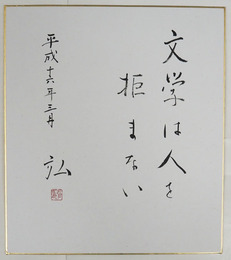 文学は人を
拒まない
平成十六年三月
弘